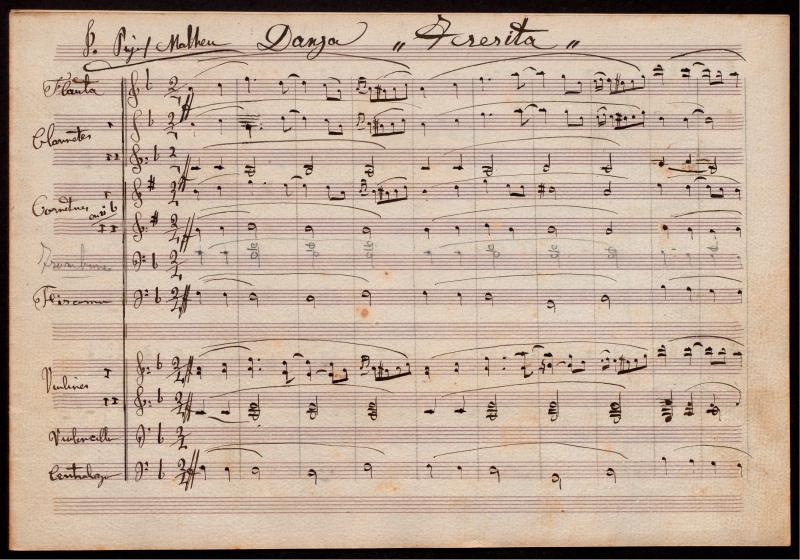 Danza "Teresita"
Flauta
Clarinetes I
II
Cornetines I
en si b
II
Trombones
Fliscorno
Violines I
II
Violoncello
Contrabajo